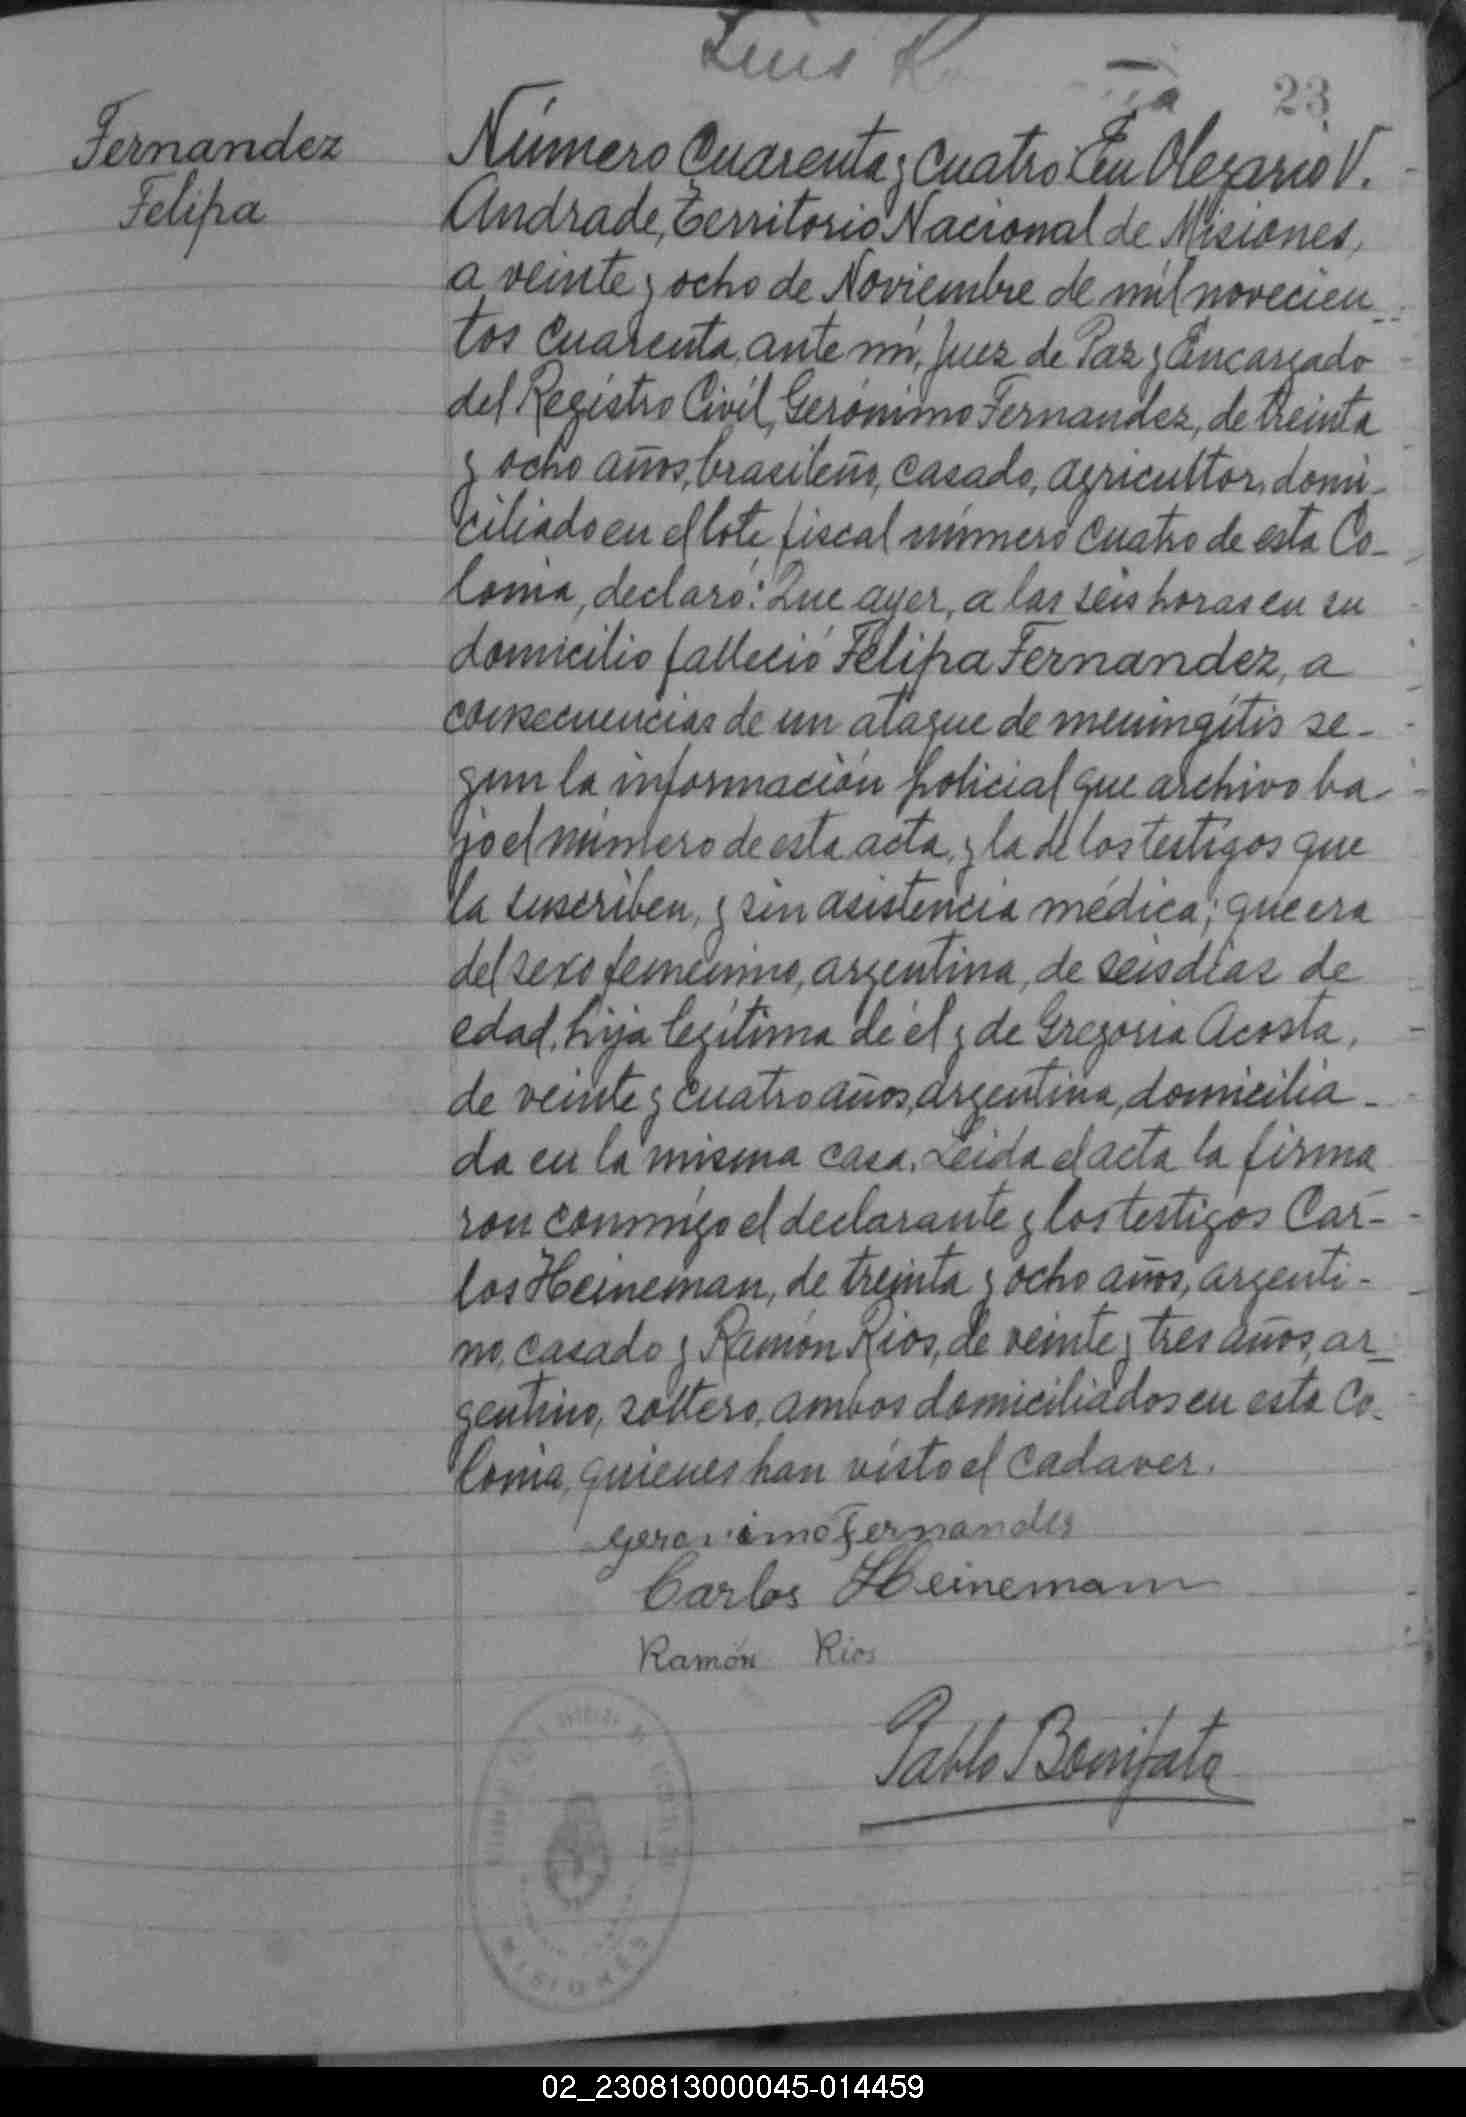 Luis
23
Fernandez
Felipa
Número Cuarenta y Cuatro: En Olegario V.
Andrade, Territorio Nacional de Misiones,
a veinte y ocho de Noviembre de mil novecien
tos cuarenta, ante mí, Juez de Paz y Encargado
del Registro Civíl, Gerónimo Fernandez, de treinta
y ocho años, brasileño, casado, agricultor, domi-
ciliado en el lote fiscal número cuatro de esta Co-
lonia, declaró: Que ayer, a las seis horas en su
domicilio falleció Felipa Fernandez, a
consecuencias de un ataque de meningítis se-
gun la información policial que archivo ba
jo el número de esta acta, y la de los testigos que
la suscriben, y sin asistencia médica; que era
del sexo femenino, argentina, de seis días de
edad, hija legítima de él y de Gregoria Acosta,
de veinte y cuatro años, argentina, domicilia-
da en la misma casa. Leida el acta la firma
ron conmígo el declarante y los testigos Car-
los Heineman, de treinta y ocho años, argenti-
no, casado y Ramón Rios, de veinte y tres años, ar-
gentino, soltero, ambos domiciliados en esta Co-
lonia, quienes han vísto el cadaver.
Geronimo Fernandes
Carlos Heinemann
Ramón Rios
Pablo Bonifato
MISIONES
02_230813000045-014459